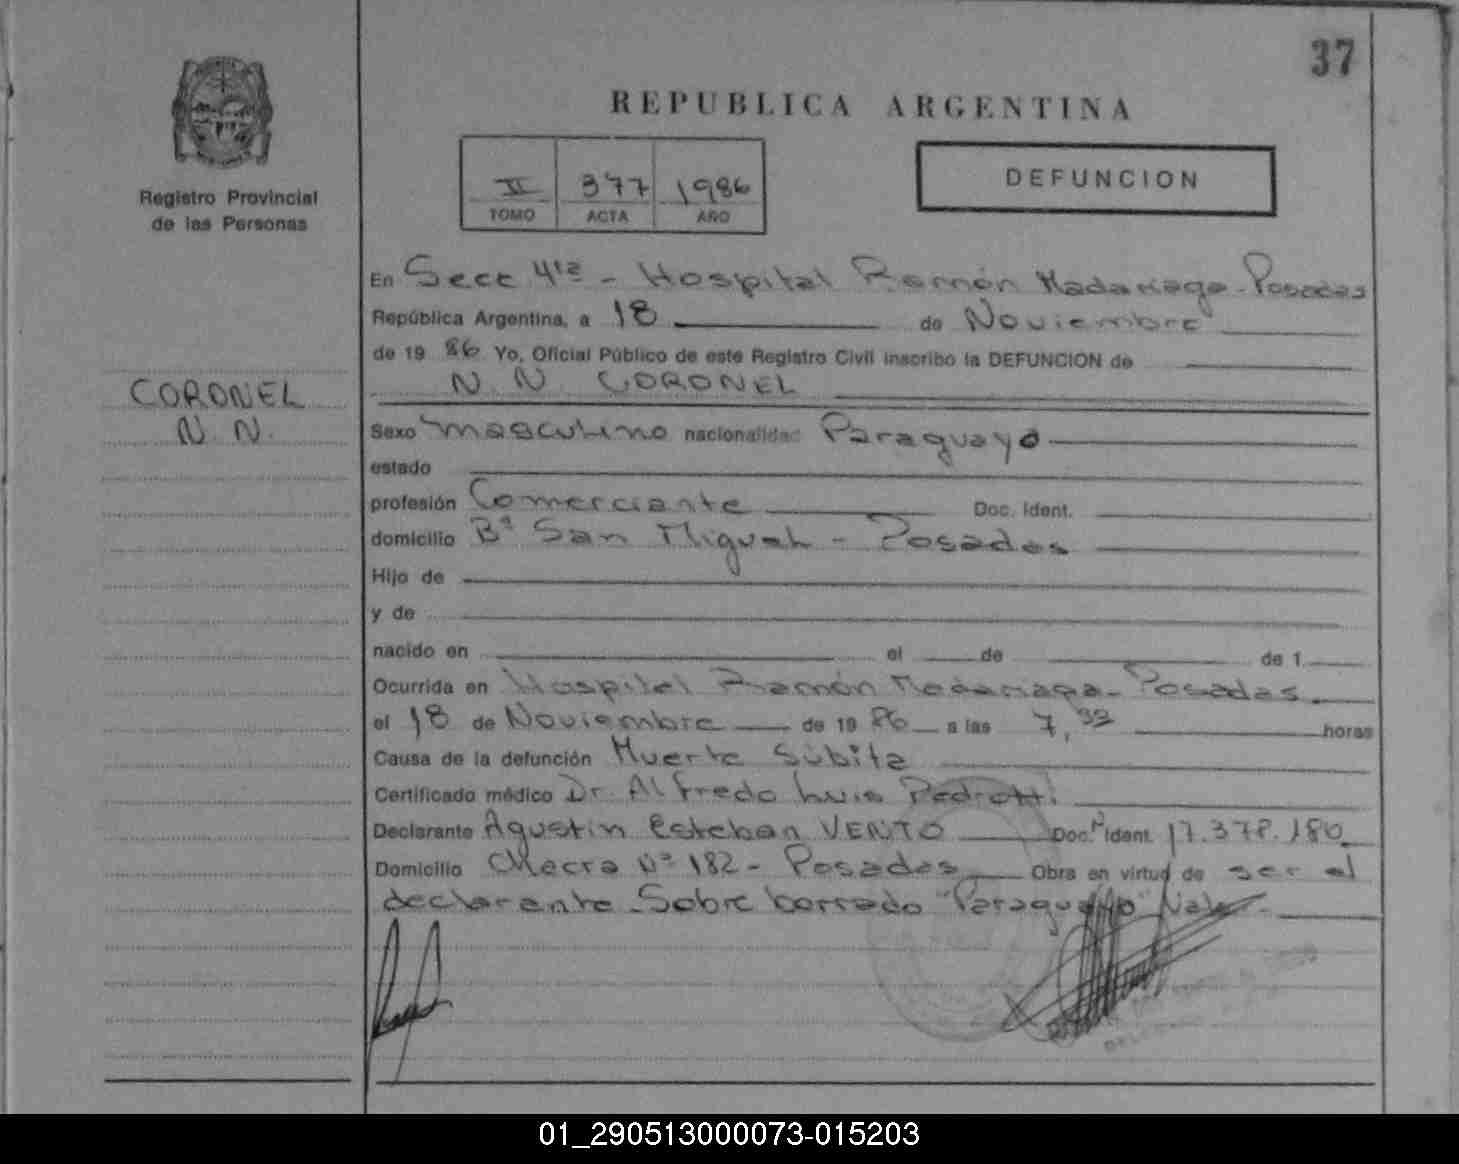 37
REPUBLICA ARGENTINA
Registro Provincial
de las Personas
II 377 1986
TOMO ACTA AÑO
DEFUNCION
CORONEL
N. N.
En Secc 4ta - Hospital Ramón Madariaga - Posadas
República Argentina, a 18 de Noviembre
de 19 86 Yo, Oficial Público de este Registro Civil inscribo la DEFUNCION de
N. N. CORONEL
Sexo masculino nacionalidad Paraguayo
estado
profesión Comerciante Doc. Ident.
domicilio Bº San Miguel - Posadas
Hijo de
y de
nacido en el de de 1
Ocurrida en Hospital Ramón Madariaga - Posadas
el 18 de Noviembre de 19 86 a las 7, horas
Causa de la defunción Muerte Súbita
Certificado médico Dr. Alfredo Luis Pedrotti
Declarante Agustin Esteban VENTO Doc. Ident. 17.378.180
Domicilio Chacra Nº 182 - Posadas Obra en virtud de ser el
declarante - Sobre borrado "Paraguayo" Vale -
01_290513000073-015203